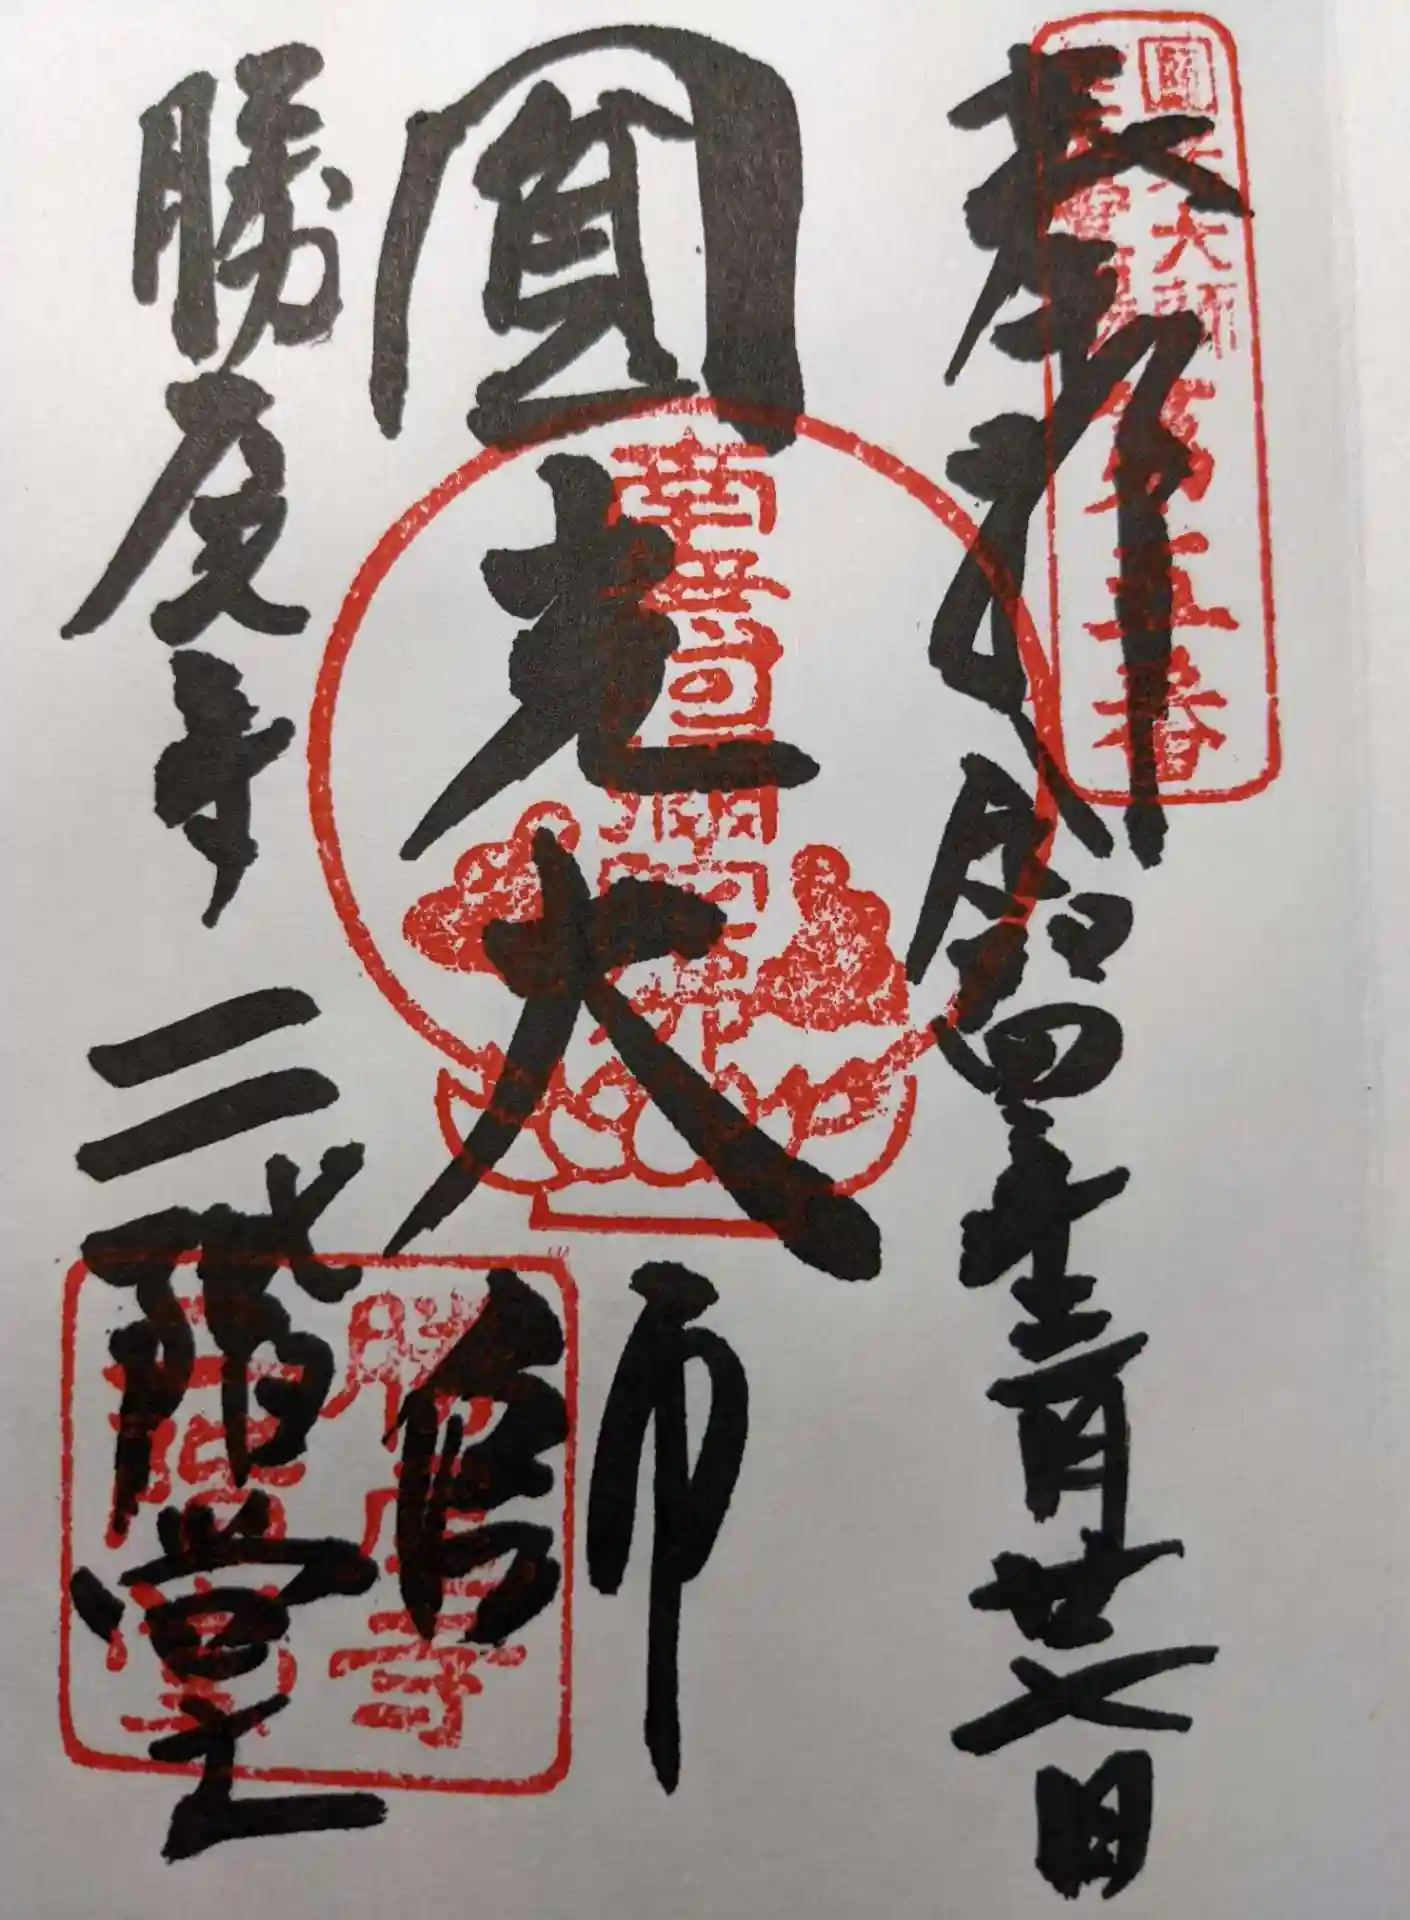 奉拝 令和四年十二月廿七日
圓光大師
勝尾寺 二階堂
圓光大師
霊場
第五番
南無阿彌陀佛
勝尾寺
二階堂